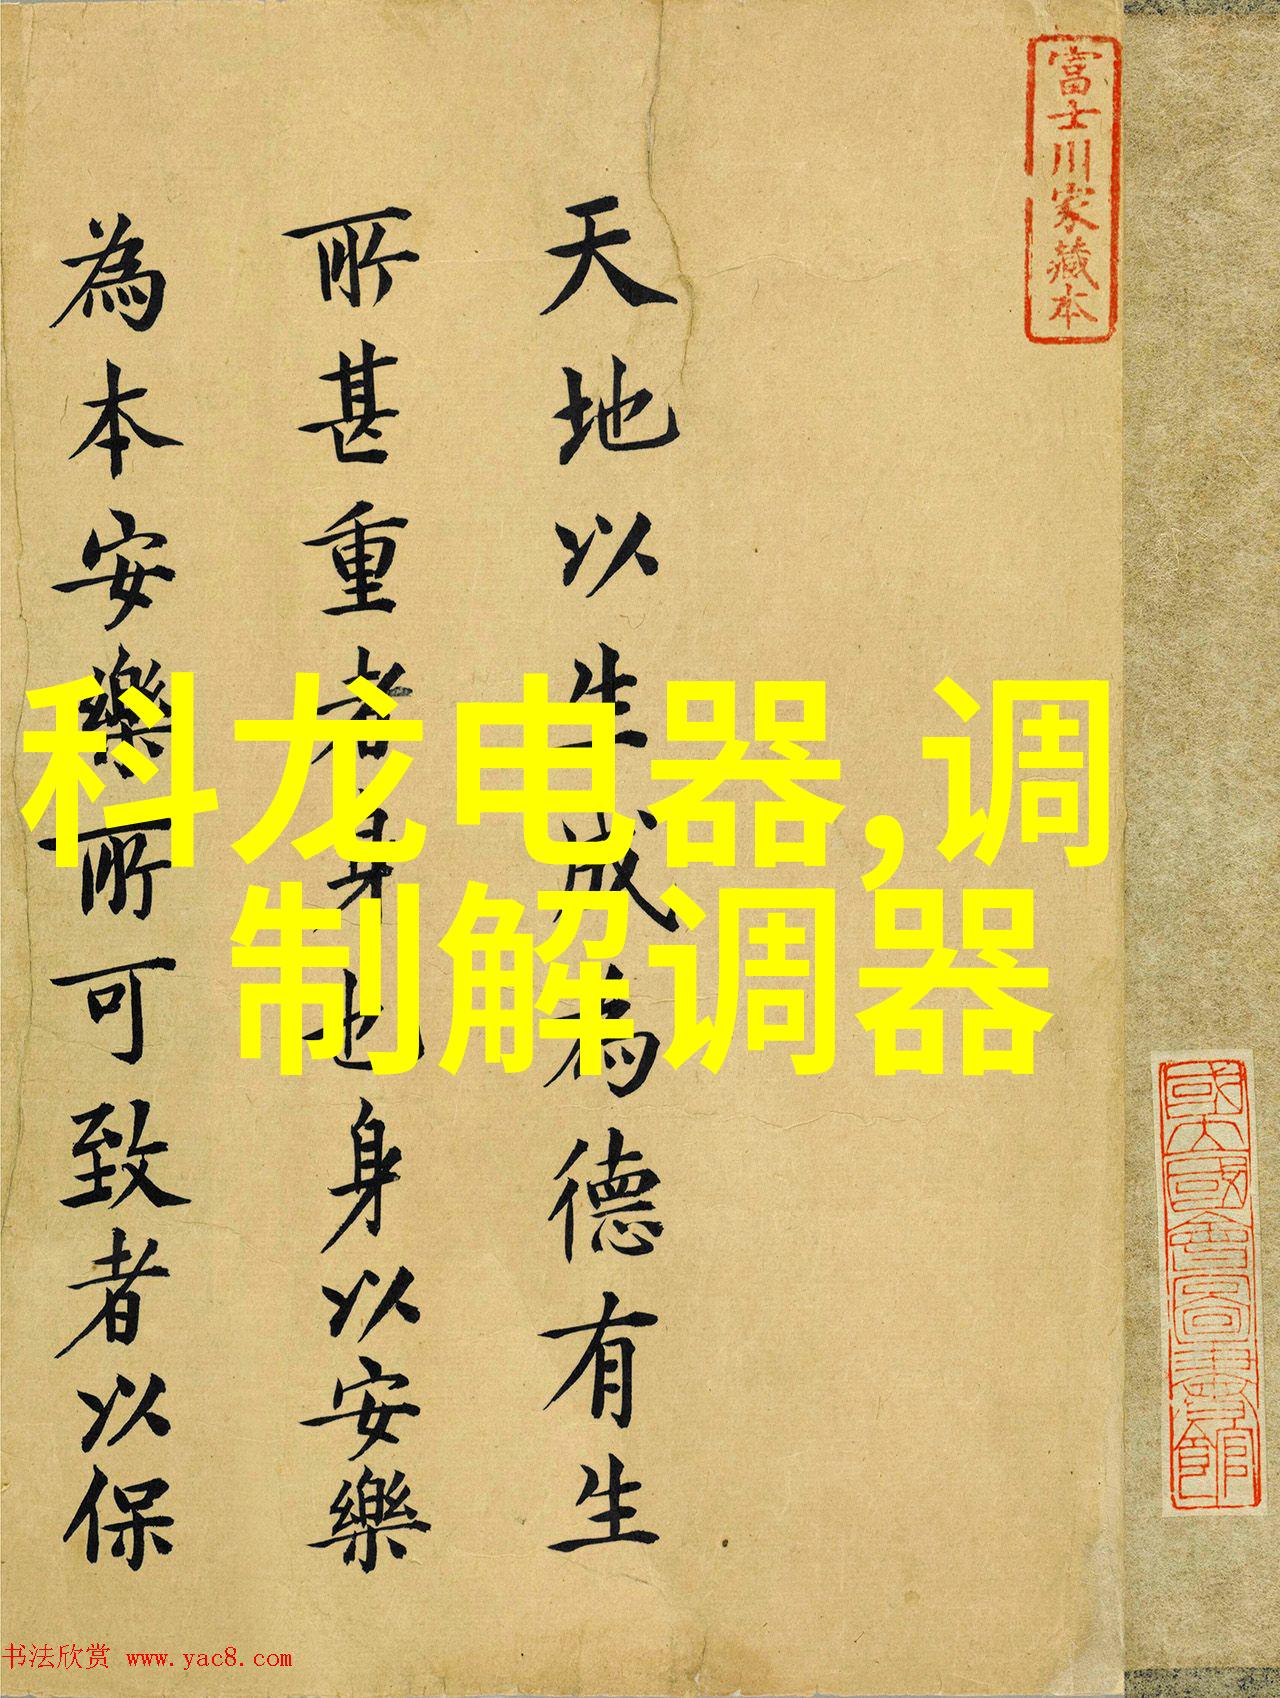 富士川家藏本
天地以生成為德有生
所甚重者身也身以安樂
為本安樂所可致者以保
科龙电器,调
制解调器
國立國會圖書館
书法欣赏 www.yac8.com